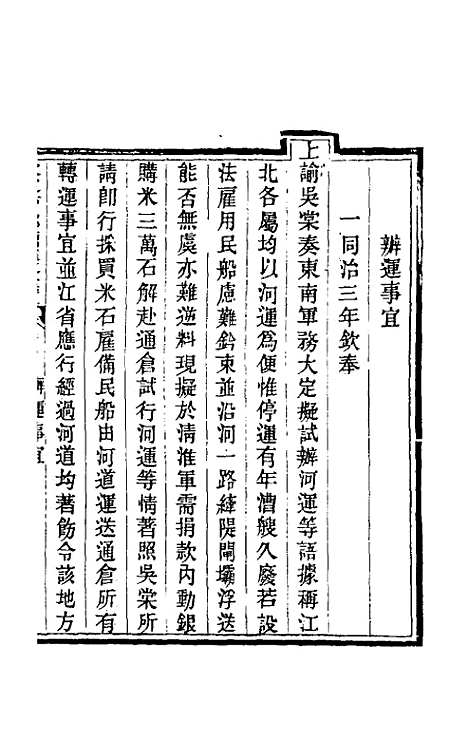 辦運事宜
一同治三年欽奉
上諭吳棠奏東南軍務大定擬試辦河運等語據稱江
北各屬均以河運爲便惟停運有年漕艘久廢若設
法雇用民船慮難鈐束並沿河一路縴隄閘壩浮送
能否無虞亦難逆料現擬於清淮軍需捐款內動銀
購米三萬石解赴通倉試行河運等情著照吳棠所
請卽行採買米石雇備民船由河道運送通倉所有
轉運事宜並江省應行經過河道均著飭令該地方
辦運事宜